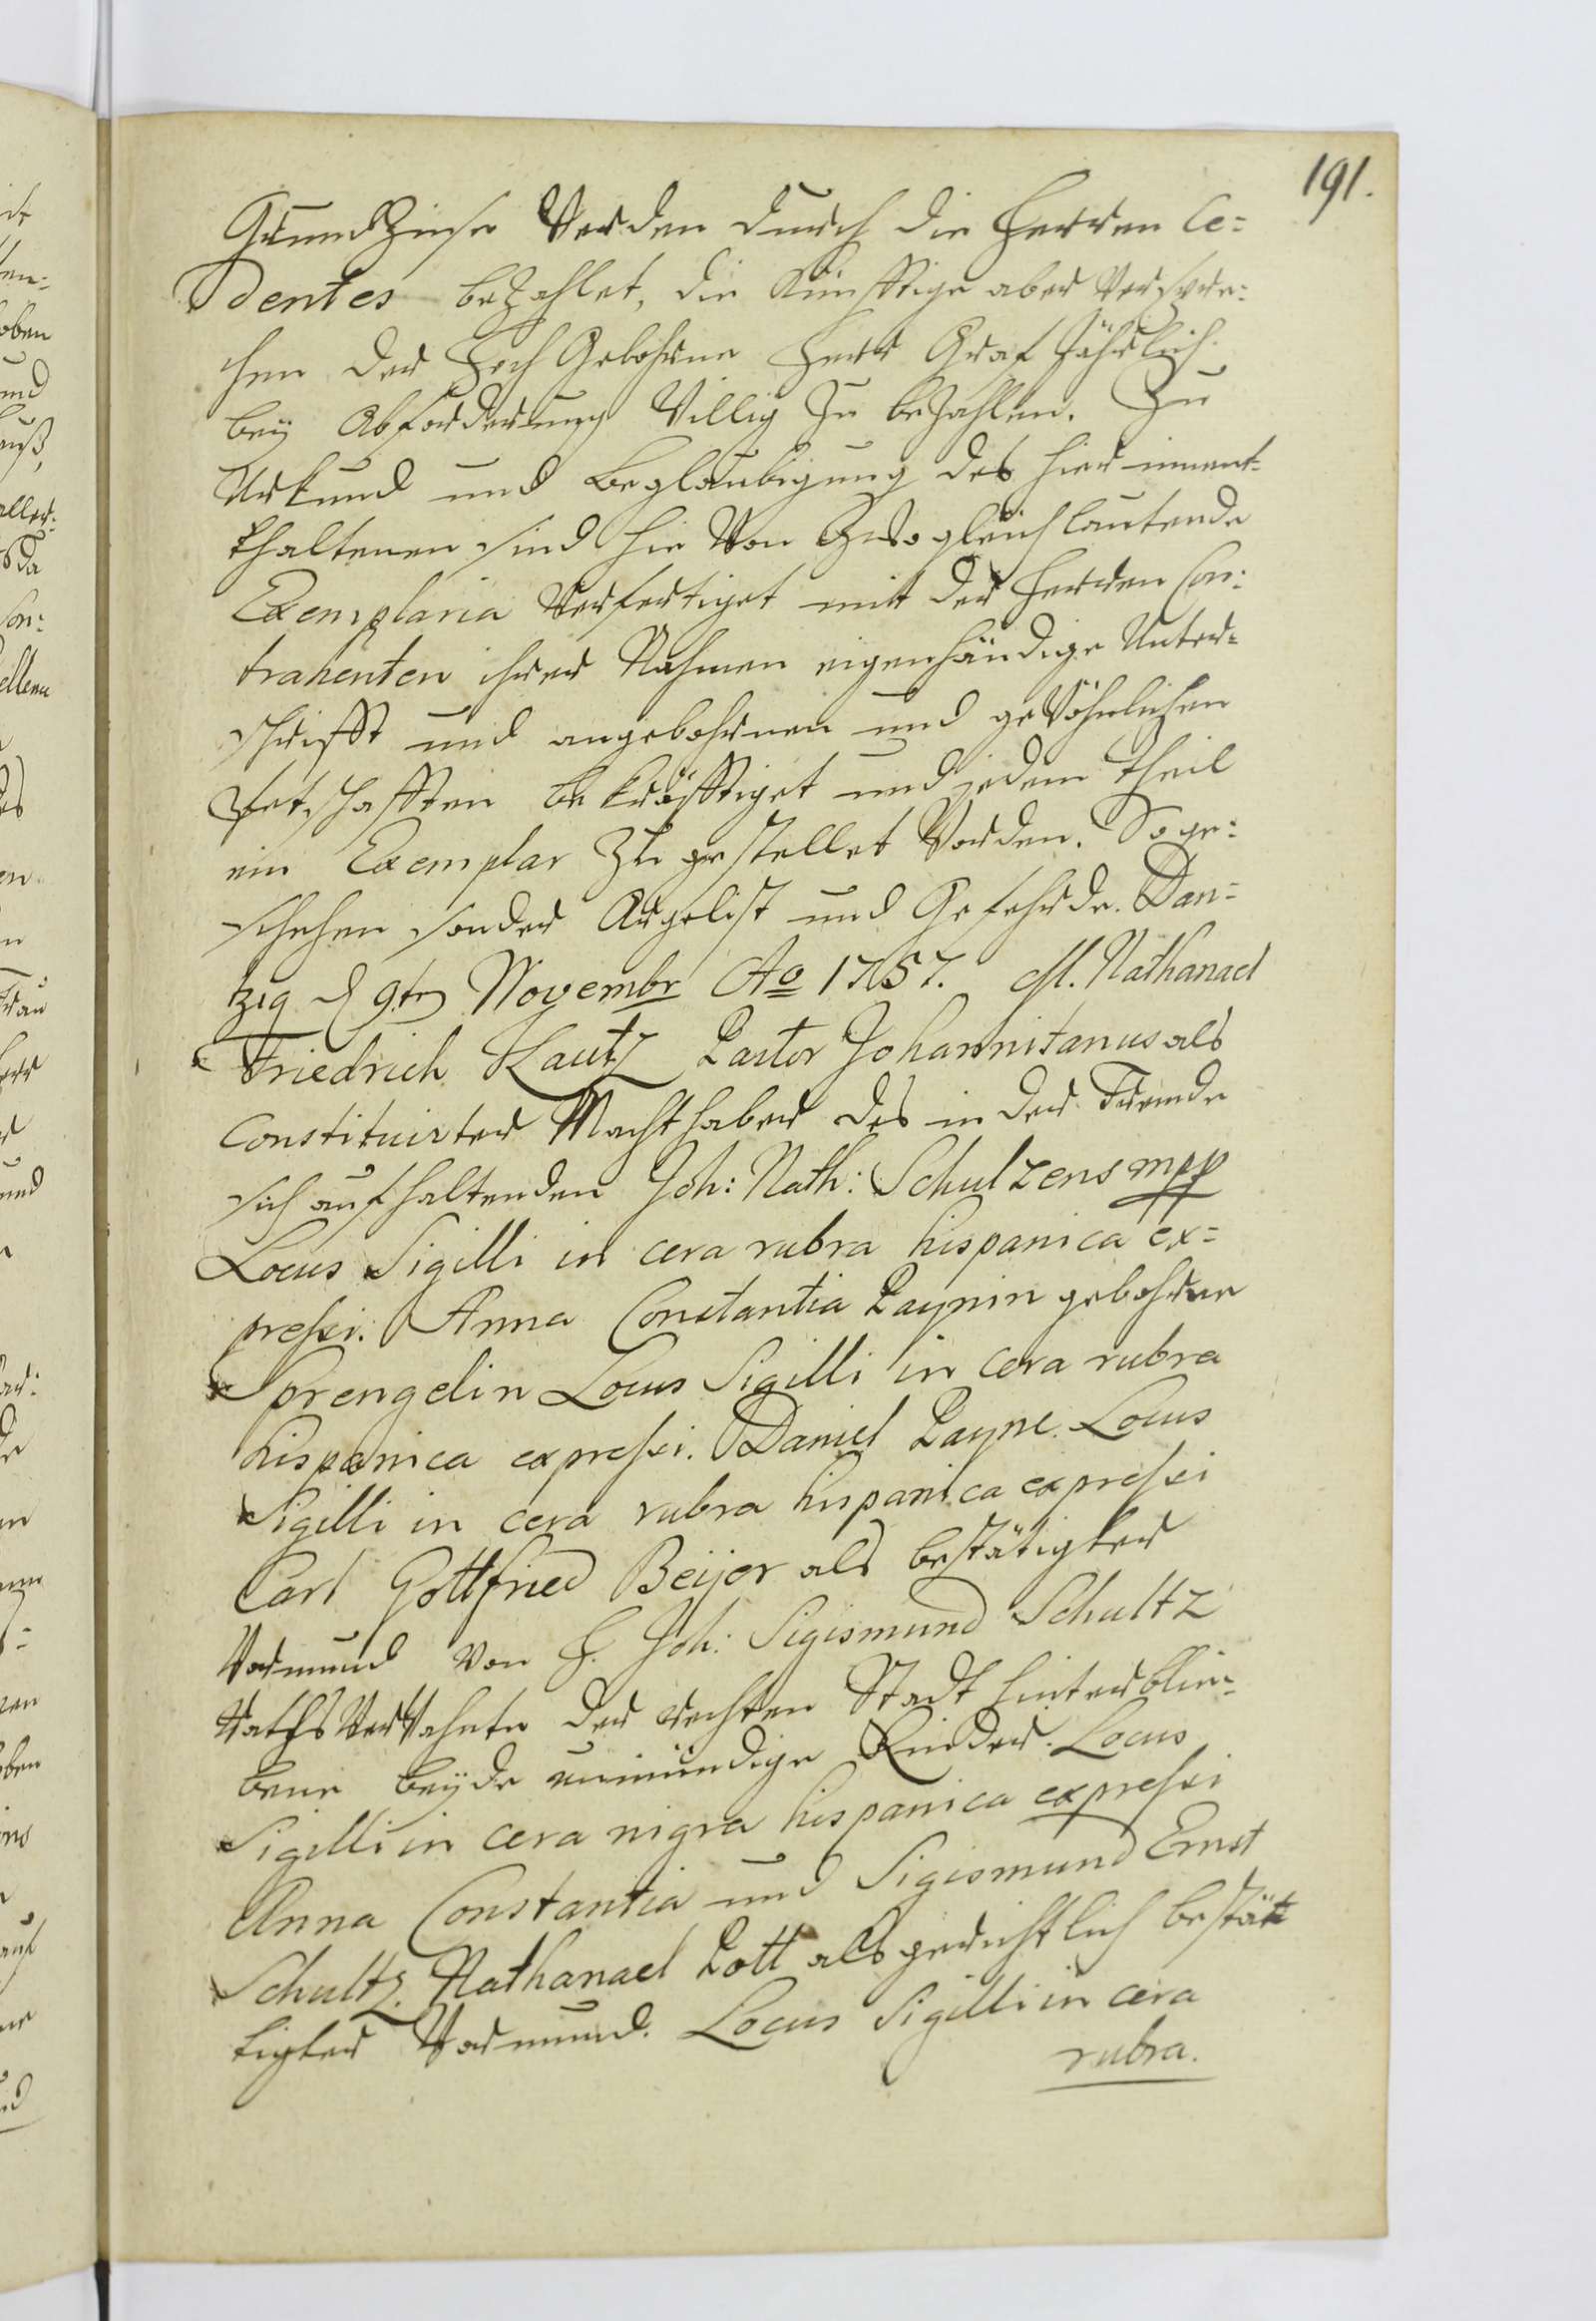 191.
Grund Zinse Werden durch die Herren Ce=
dentes beZahlet, die Künfftige aber Verspre=
chen der Hoch Gebohrne Herr Graf Jährlich
beÿ Abforderung Willig Zu beZahlen. Zu
Urkund und Beglaubigung des hier innent=
thaltenen sind hie Von Zwo gleichlautende
Exemplaria Verfertiget mit der Herren Con=
trahenten ihrer Nahmen eigenhändige Unter=
schrifft und angebohrnen und geWöhnlichen
Petschafften bekräfftiget und jedem Theil
ein Exemplar Zugestellet Worden. So ge=
schehen sonder Argelist und Gefehrde. Dan=
tzig d 9ten Novembr Ao 1757. M. Nathanael
Friedrich Kautz Pastor Johannitanus als
Constituirter Machthaber des in der Fremde
sich aufhaltenden Joh: Nath: Schulzens mpp
Locus Sigilli in cera rubra hispanica ex=
pressi. Anna Constantia Paynin gebohrne
Sprengelin Locus Sigilli in cera rubra
hispanica expressi. Daniel Payne. Locus
Sigilli in cera rubra hispanica expressi
Carl Gottfried Beijer als bestätigter
Vormund von H. Joh: Sigismund Schultz
RathsVerWahnte der rechten Stadt hinterblie=
bene beÿde unmündige Kinder. Locus
Sigilli in cera nigra hispanica expressi
Anna Constantia und Sigismund Ernst
Schultz. Nathanael Pott als gerichtlich bestät
tigter Vormund. Locus Sigilli in cera
rubra.